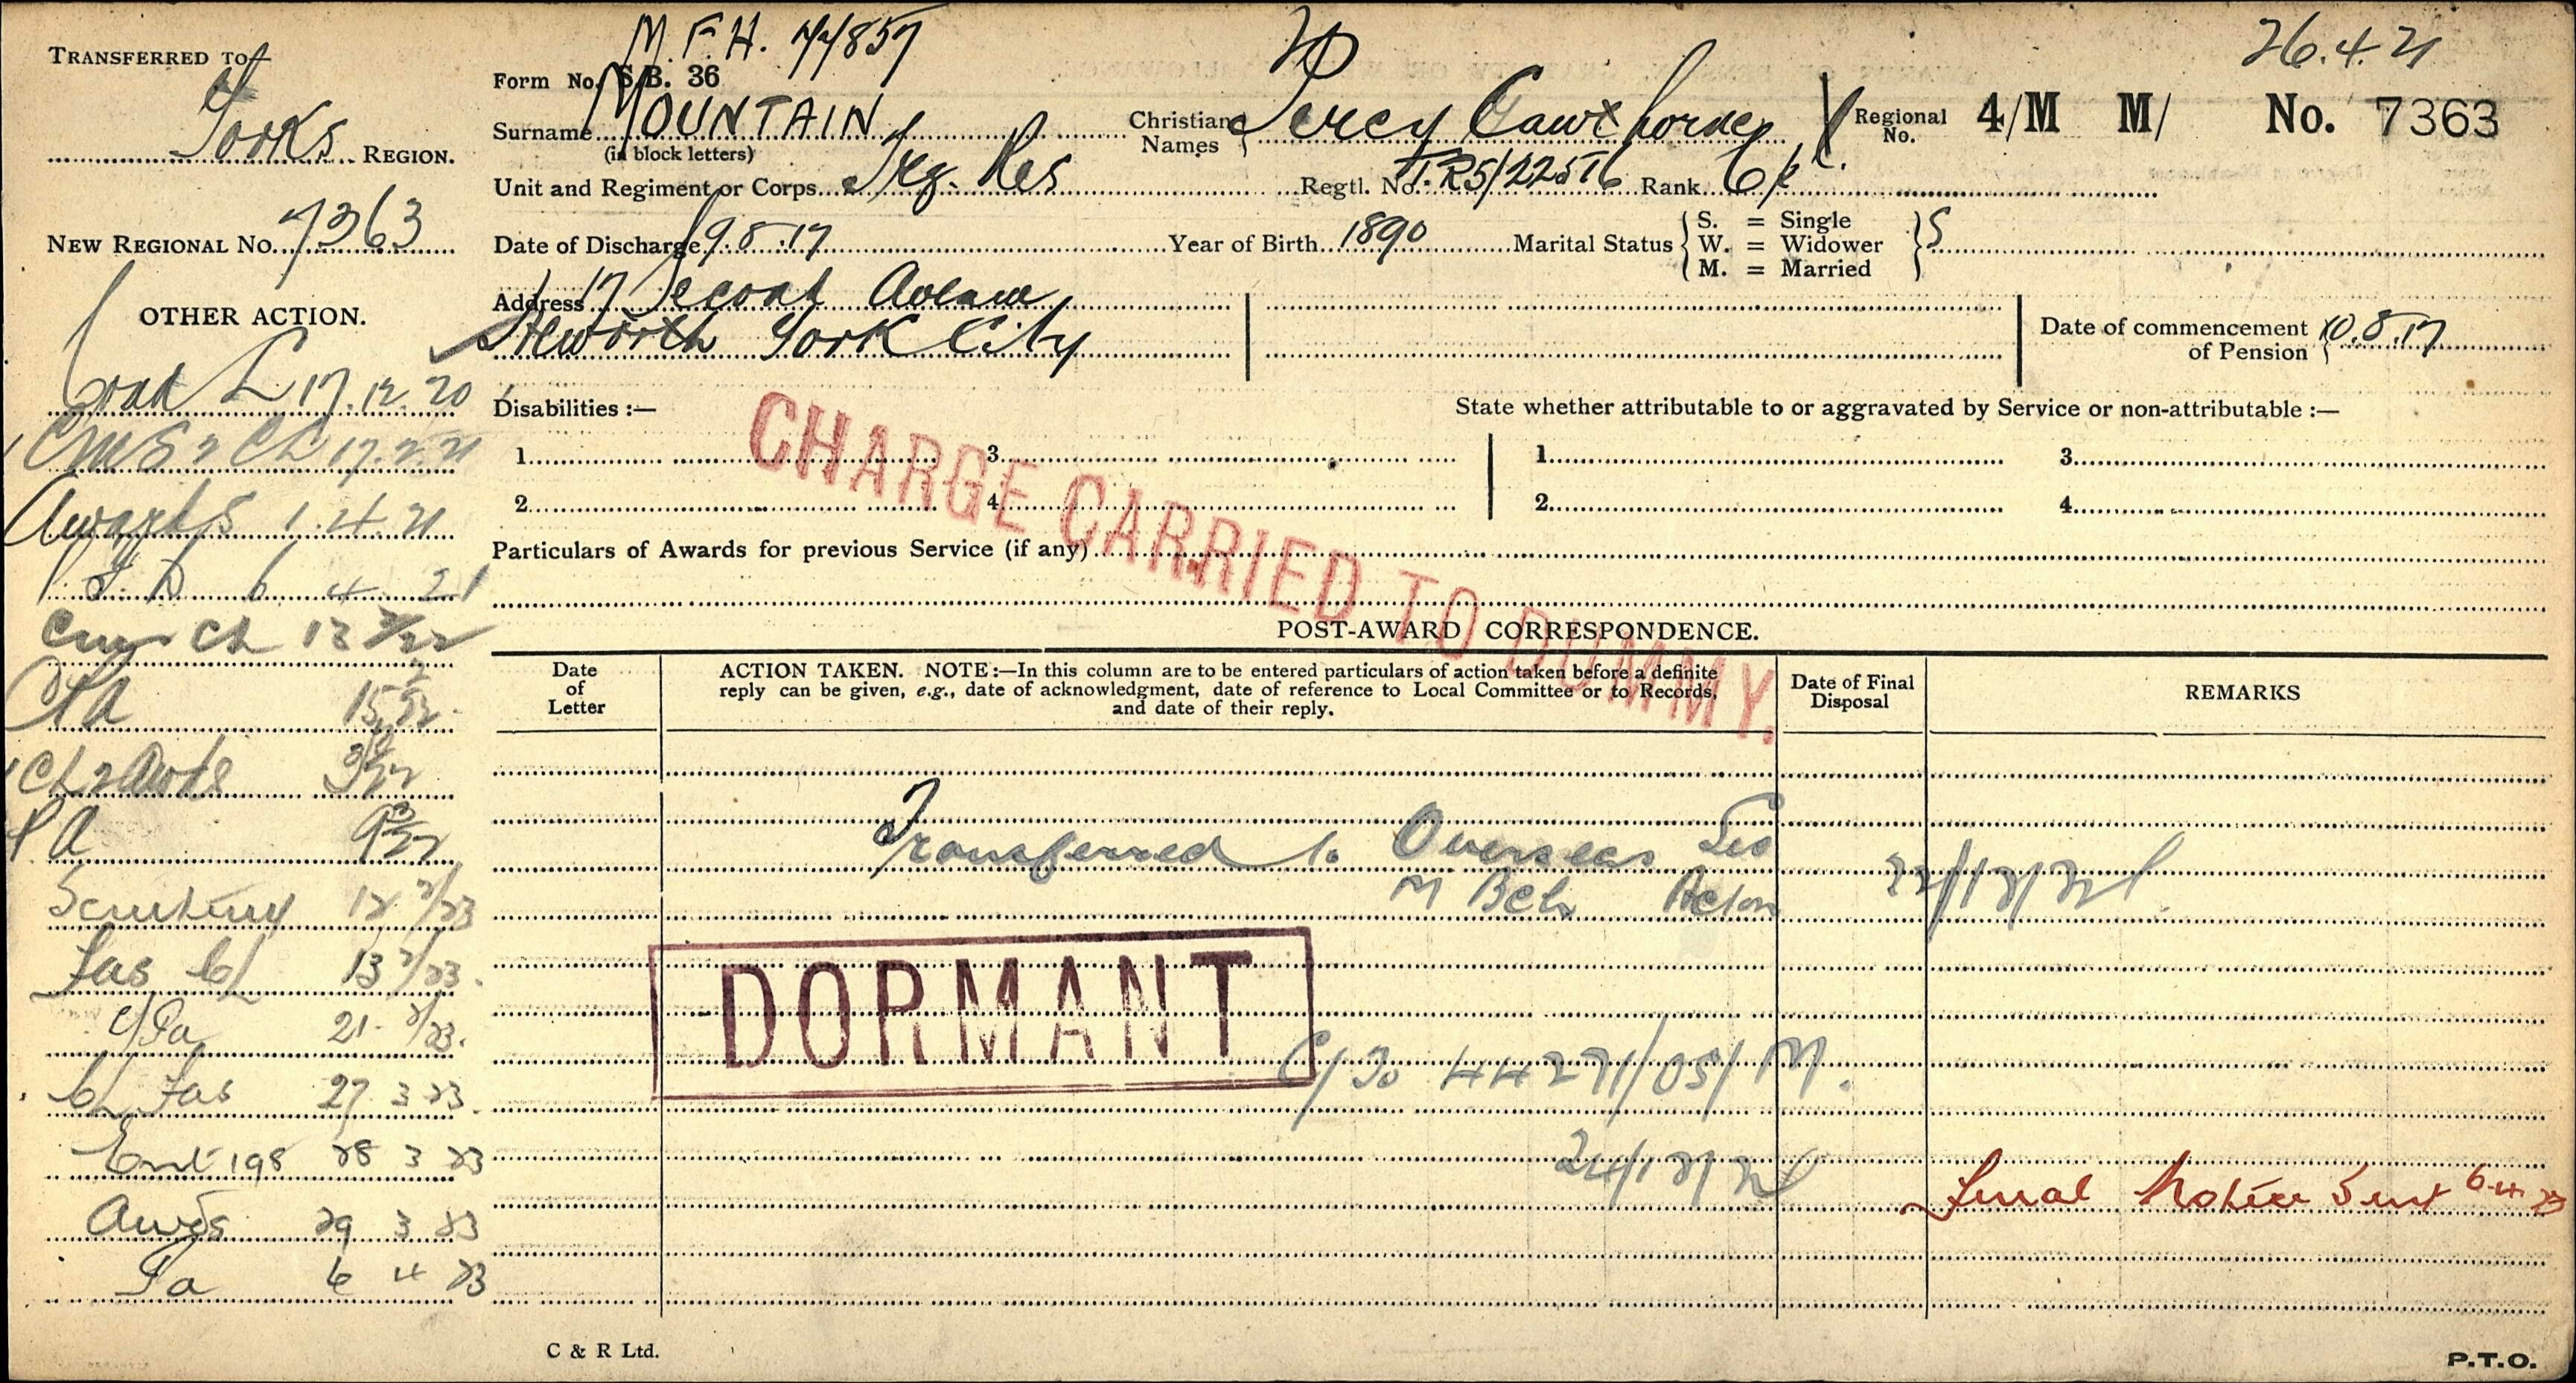 26.4.21
M.F.H. 77857
TRANSFERRED TO
Yorks REGION.
NEW REGIONAL No. 7363
Form No. S.B. 36
Surname MOUNTAIN
(in block letters)
Christian Names Percy Cawthorne
Regional No. 4/M M/ No. 7363
Unit and Regiment or Corps Trg. Res
Regtl. No. TR5/22516 Rank
Date of Discharge 9.8.17
Year of Birth 1890
Marital Status S. = Single
W. = Widower
M. = Married
S
Address 17 Second Avenue
Heworth York City
Date of commencement of Pension 10.8.17
OTHER ACTION.
17.12.20
17.2.21
Awards 1.4.21
6 4 21
Ch 13
PA 15
Ch 2 Awds
P.A
Scrutiny 12 2/23
Fas Ch 13 2/23.
21. 2/23.
Ch Fas 27 3 23.
Ent 198 28 3 23
Awds 29 3 23
Pa 6 4 23
Disabilities :—
1. 3.
2. 4.
State whether attributable to or aggravated by Service or non-attributable :—
1. 3.
2. 4.
CHARGE CARRIED TO DUMMY.
Particulars of Awards for previous Service (if any)
POST-AWARD CORRESPONDENCE.
Date of Letter
ACTION TAKEN. NOTE:—In this column are to be entered particulars of action taken before a definite
reply can be given, e.g., date of acknowledgment, date of reference to Local Committee or to Records,
and date of their reply.
Date of Final Disposal
REMARKS
Transferred to Overseas
M Bch Acton
DORMANT
C/To 44271/OS/M.
Final Notice Sent 6 4 23
C & R Ltd.
P.T.O.